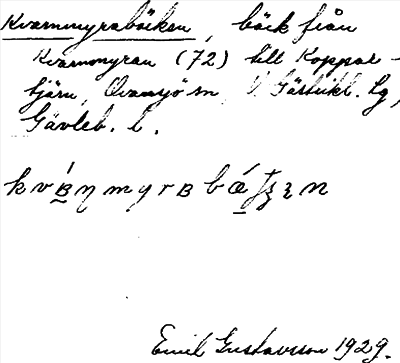 Kvarnmyrabäcken, bäck från
Kvarnmyran (72) till Koppar-
tjärn, Ovansjö sn, V. Gästrikl. tg,
Gävleb. l.
Emil Gustavsson 1929.